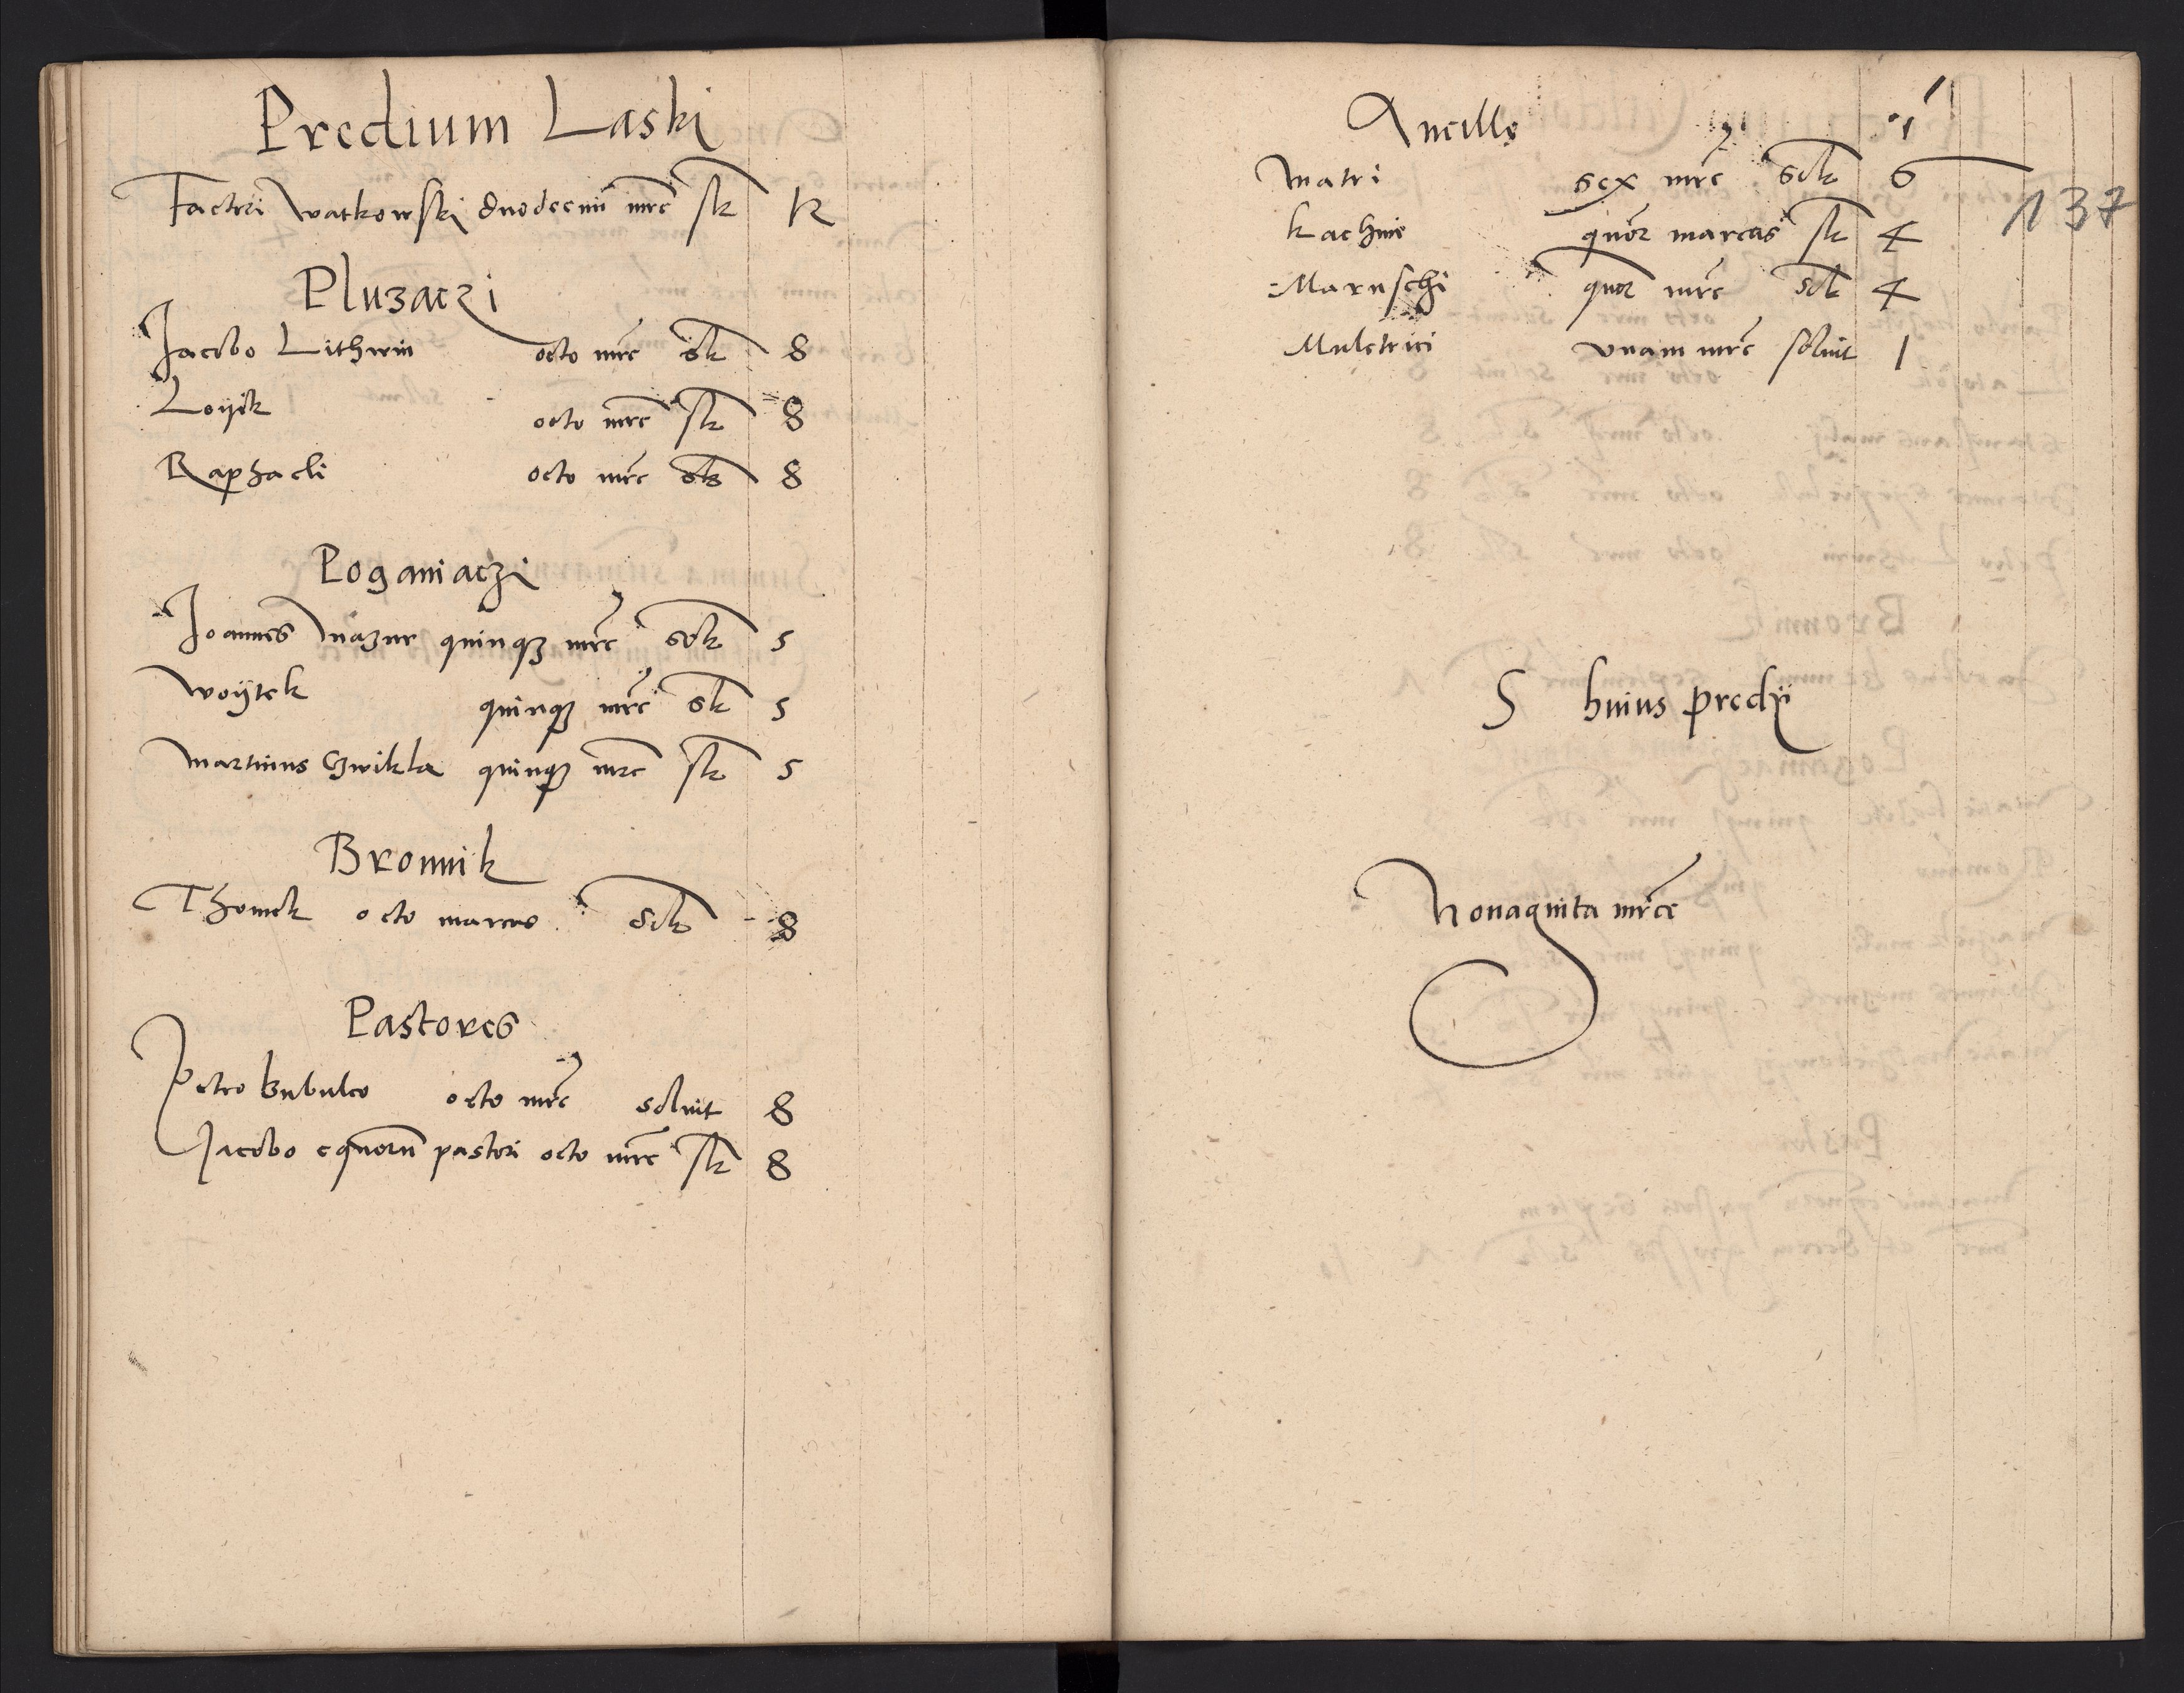 Predium Laski
Factori Watkowski duodecim mrc slt 12
Pluzaczi
Jacobo Lithwin octo mrc slt 8
Loyek octo mrc slt 8
Raphaeli octo mrc slt 8
Poganiaczi
Joannes Mazur quinq3 mrc solt 5
Woÿtek quinq3 mrc slt 5
Martinus Czwikla quinq3 mrc slt 5
Bronnik
Thomek octo marcas solt 8
Pastores
Petro bubulco octo mrc soluit 8
Jacobo equorum pastori octo mrc slt 8
Ancille
137
Matri sex mrc solt 6
Kachnie quor marcas slt 4
Maruschi quor mrc solt 4
Mulctrici vnam mrc soluit 1
S huius predij
Nonaginta mrce